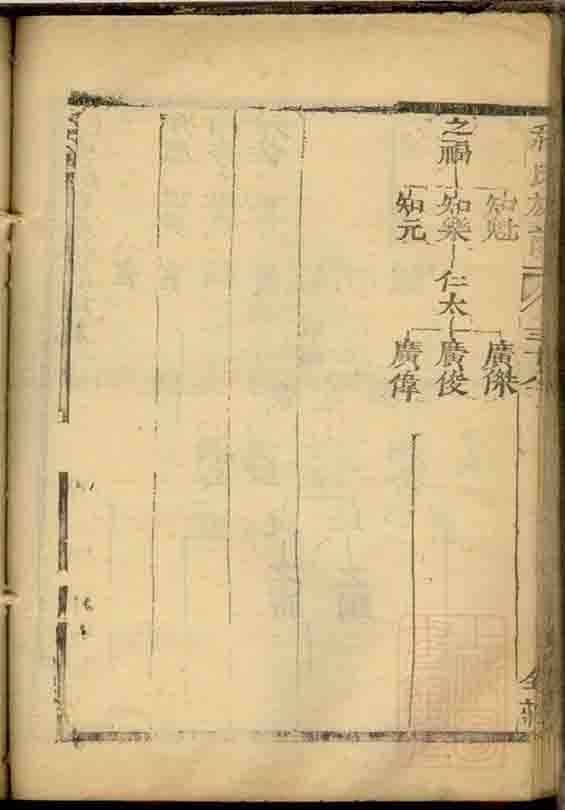 氏族
之福
知魁
知樂
知元
仁太
廣傑
廣俊
廣偉